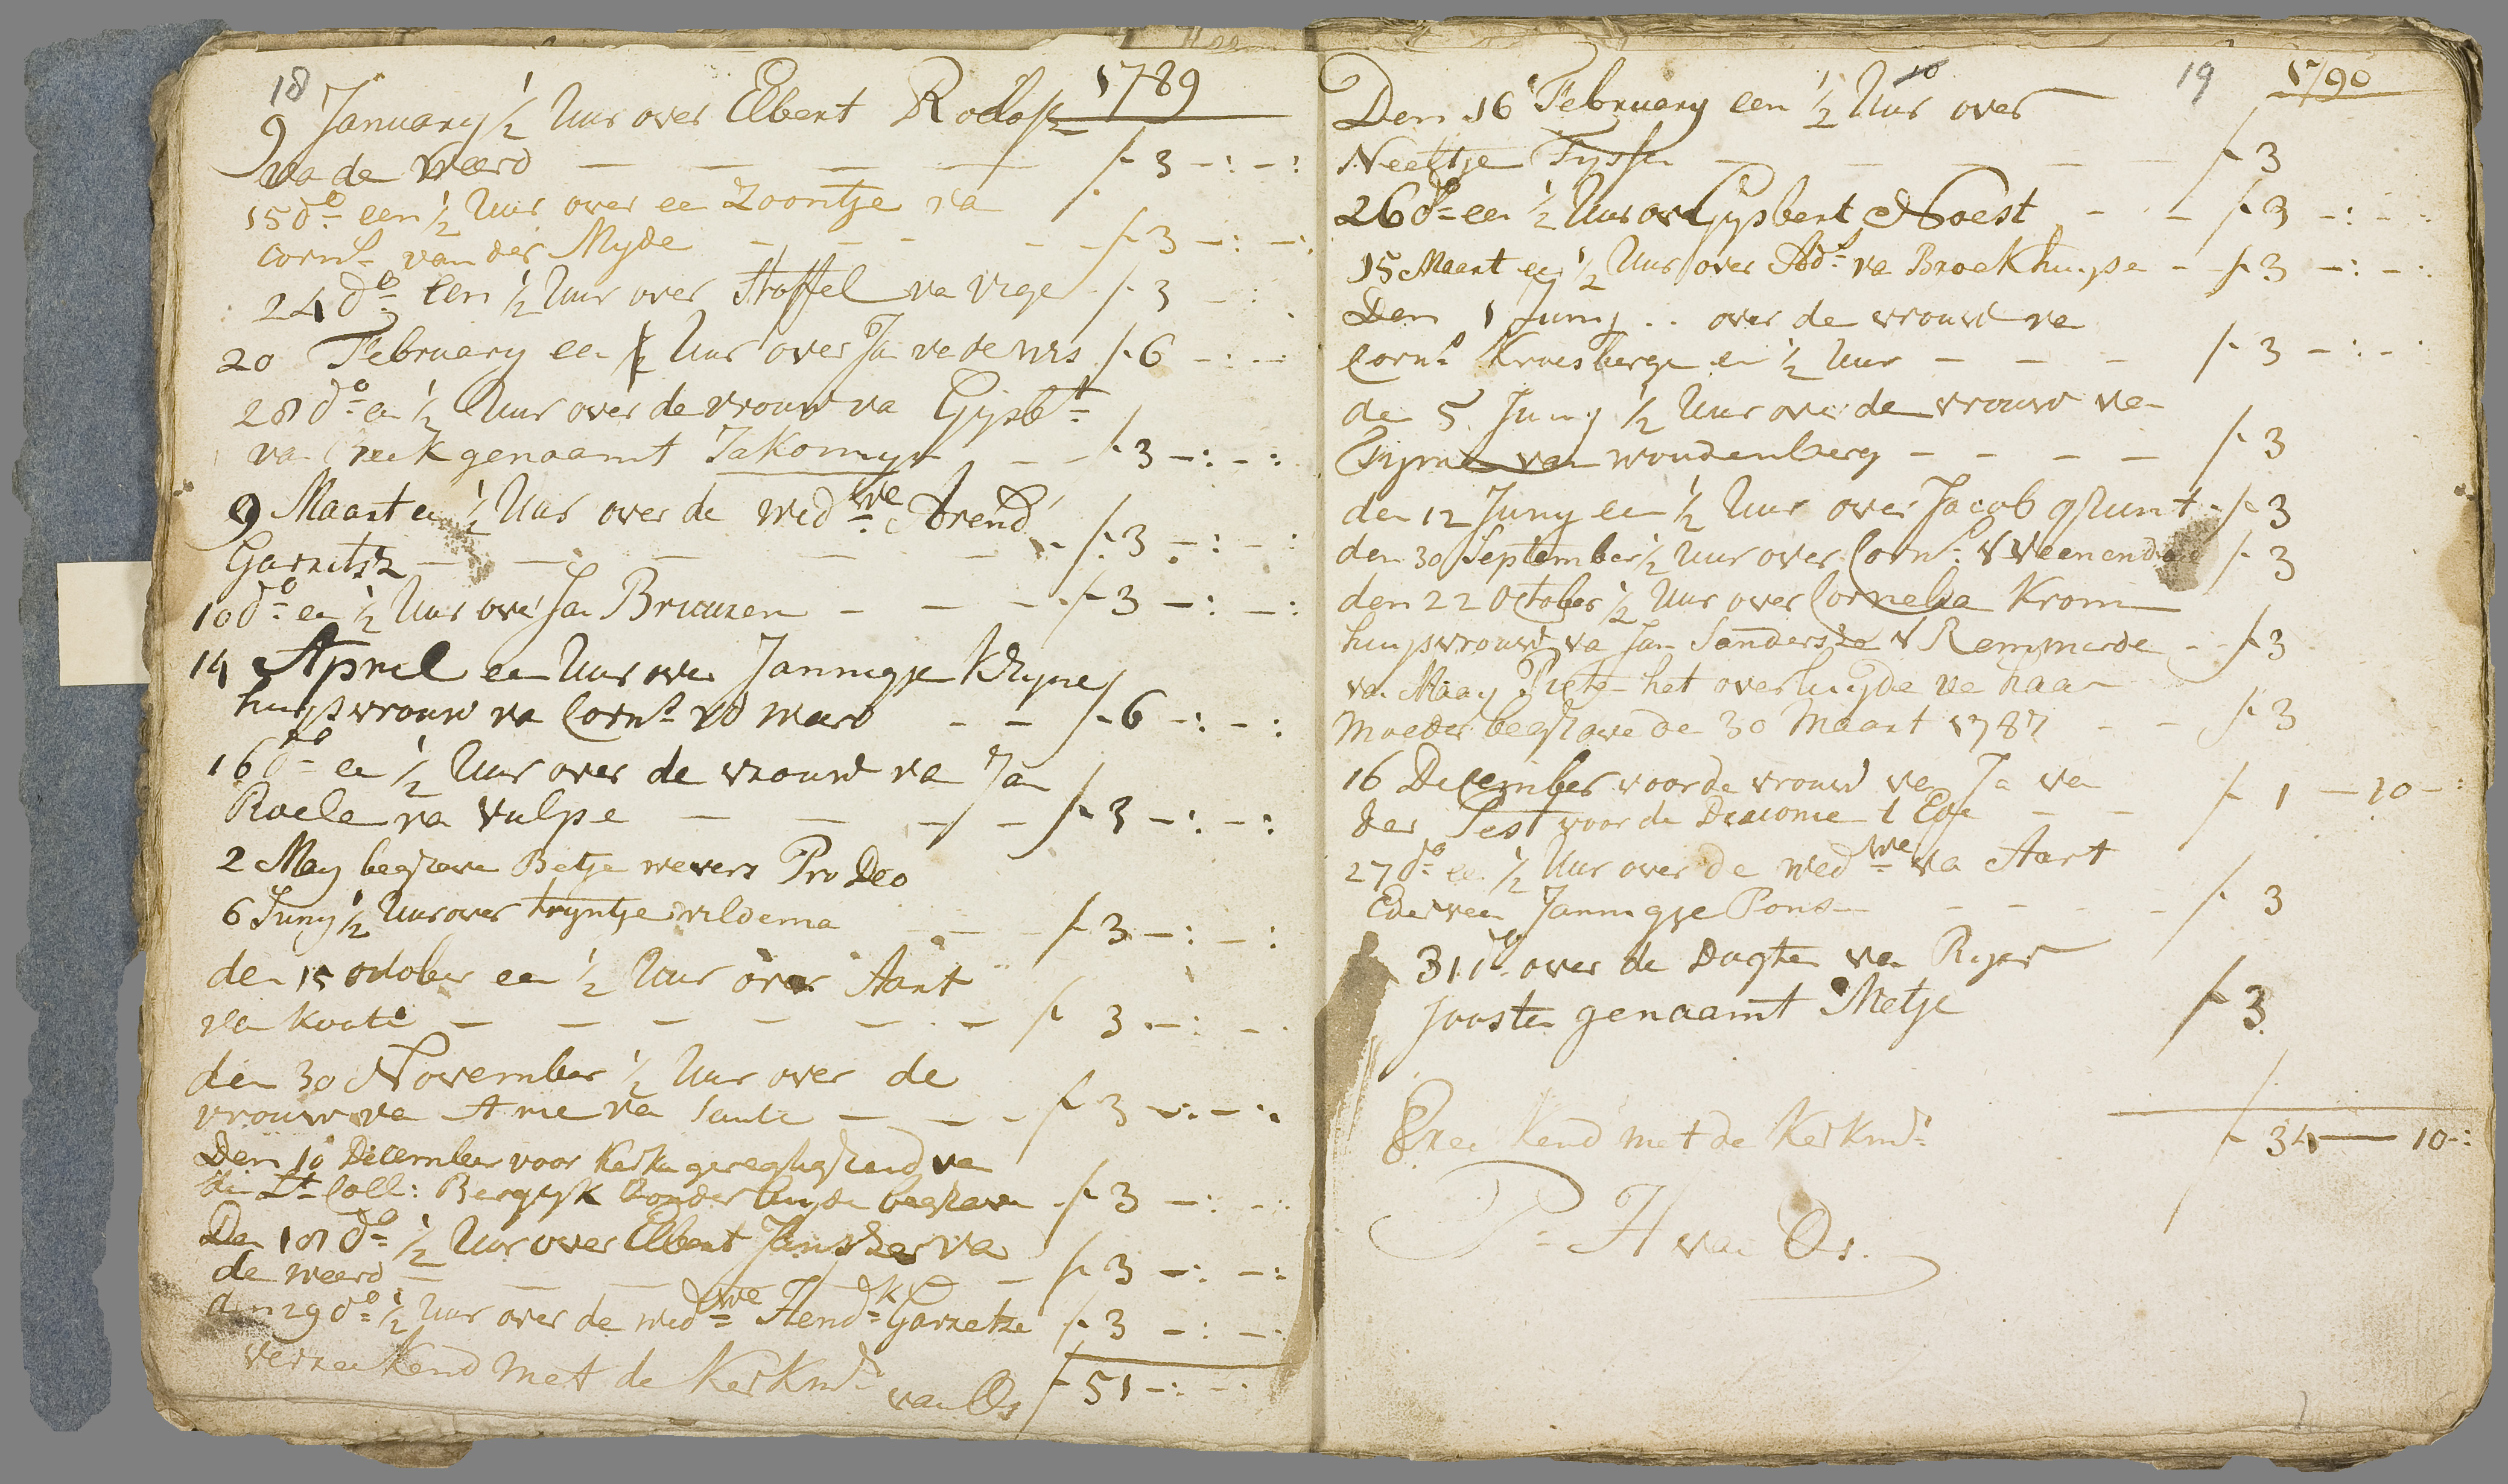 18
1789
9 January ½ Uur over Elbert Rodofs
va de Weerd — — — — — f 3 -:-:
15 do een ½ Uur over ee Zoontje va
corns van der Myde — — — f 3 -:-:
24 do een ½ Uur over Stoffel va f 3 -:
20 February ee Uur over Ja f 6 -:-:
28 do ee ½ Uur over de vrouw va Gijsbt
va genaamt Jakomyn — f 3 -:-:
9 Maart ee ½ Uur over de wedwe Arend
Garritsz — — — — f 3 -:-:
10 do ee ½ Uur over Ja Bruuren — — f 3 -:-:
14 Aprel ee Uur over Jannigje
huysvrouw va Corns vd weerd — — f 6 -:-:
16 do ee ½ Uur over de vrouw va Ja
Roele va Vulpe — — — — f 3 -:-:
2 May begrave Betje wevers Pro Deo
6 Juny ½ Uur over tryntje wildema — — f 3 -:-:
de 15 october ee ½ Uur over Aart
va Koote — — — — — f 3 -:-
den 30 November ½ Uur over de
vrouw va Arie va Sante — — — f 3 -:-:
Den 10 December voor Kerke geregtigheid va
Coll: Bergeyk begrave f 3 -:-:
Den 18 do ½ Uur over Elbert va
de weerd — — — — f 3 -:-:
den 29 do ½ Uur over de wedwe Hendk Garretse f 3 -:-:
verreekend met de Kerkmr
van Os f 51 -:-:
19
1790
Den 16 February een ½ Uur over
Neeltje Tysse — — — — f 3
26 do ee ½ Uur over Gysbert Noest — — f 3 -:-:
15 Maart ee ½ Uur over Add va Broekhuyse — f 3 -:-:
Den 1 Juny .. over de vrouw va
Corns Kruesberge ee ½ Uur — — — f 3 -:-:
de 5 Juny ½ Uur over de vrouw va
Tyme van woudenberg — — — — f 3
den 12 Juny ee ½ Uur over Jacob f 3
den 30 September ½ Uur over Corns v Veenend f 3
den 22 October ½ Uur over Cornelia Krom
huysvrouw va Jan Sanders v Remmerde — f 3
va Maay het overluyde va haar
moeder begrave de 30 Maart 1787 — — f 3
16 December voor de vrouw va Ja va
der Pest voor de Diaconie t Ede — — f 1 — 10 -:
27 do ee ½ Uur over de wedwe va Aart
Ederveen Jannigje Pons — — — — f 3
31 do over de Dogter va Ryer
Jooste genaamt Metje f 3
f 34 — 10 -:
kend met de Kerkmr
P: H van Os.